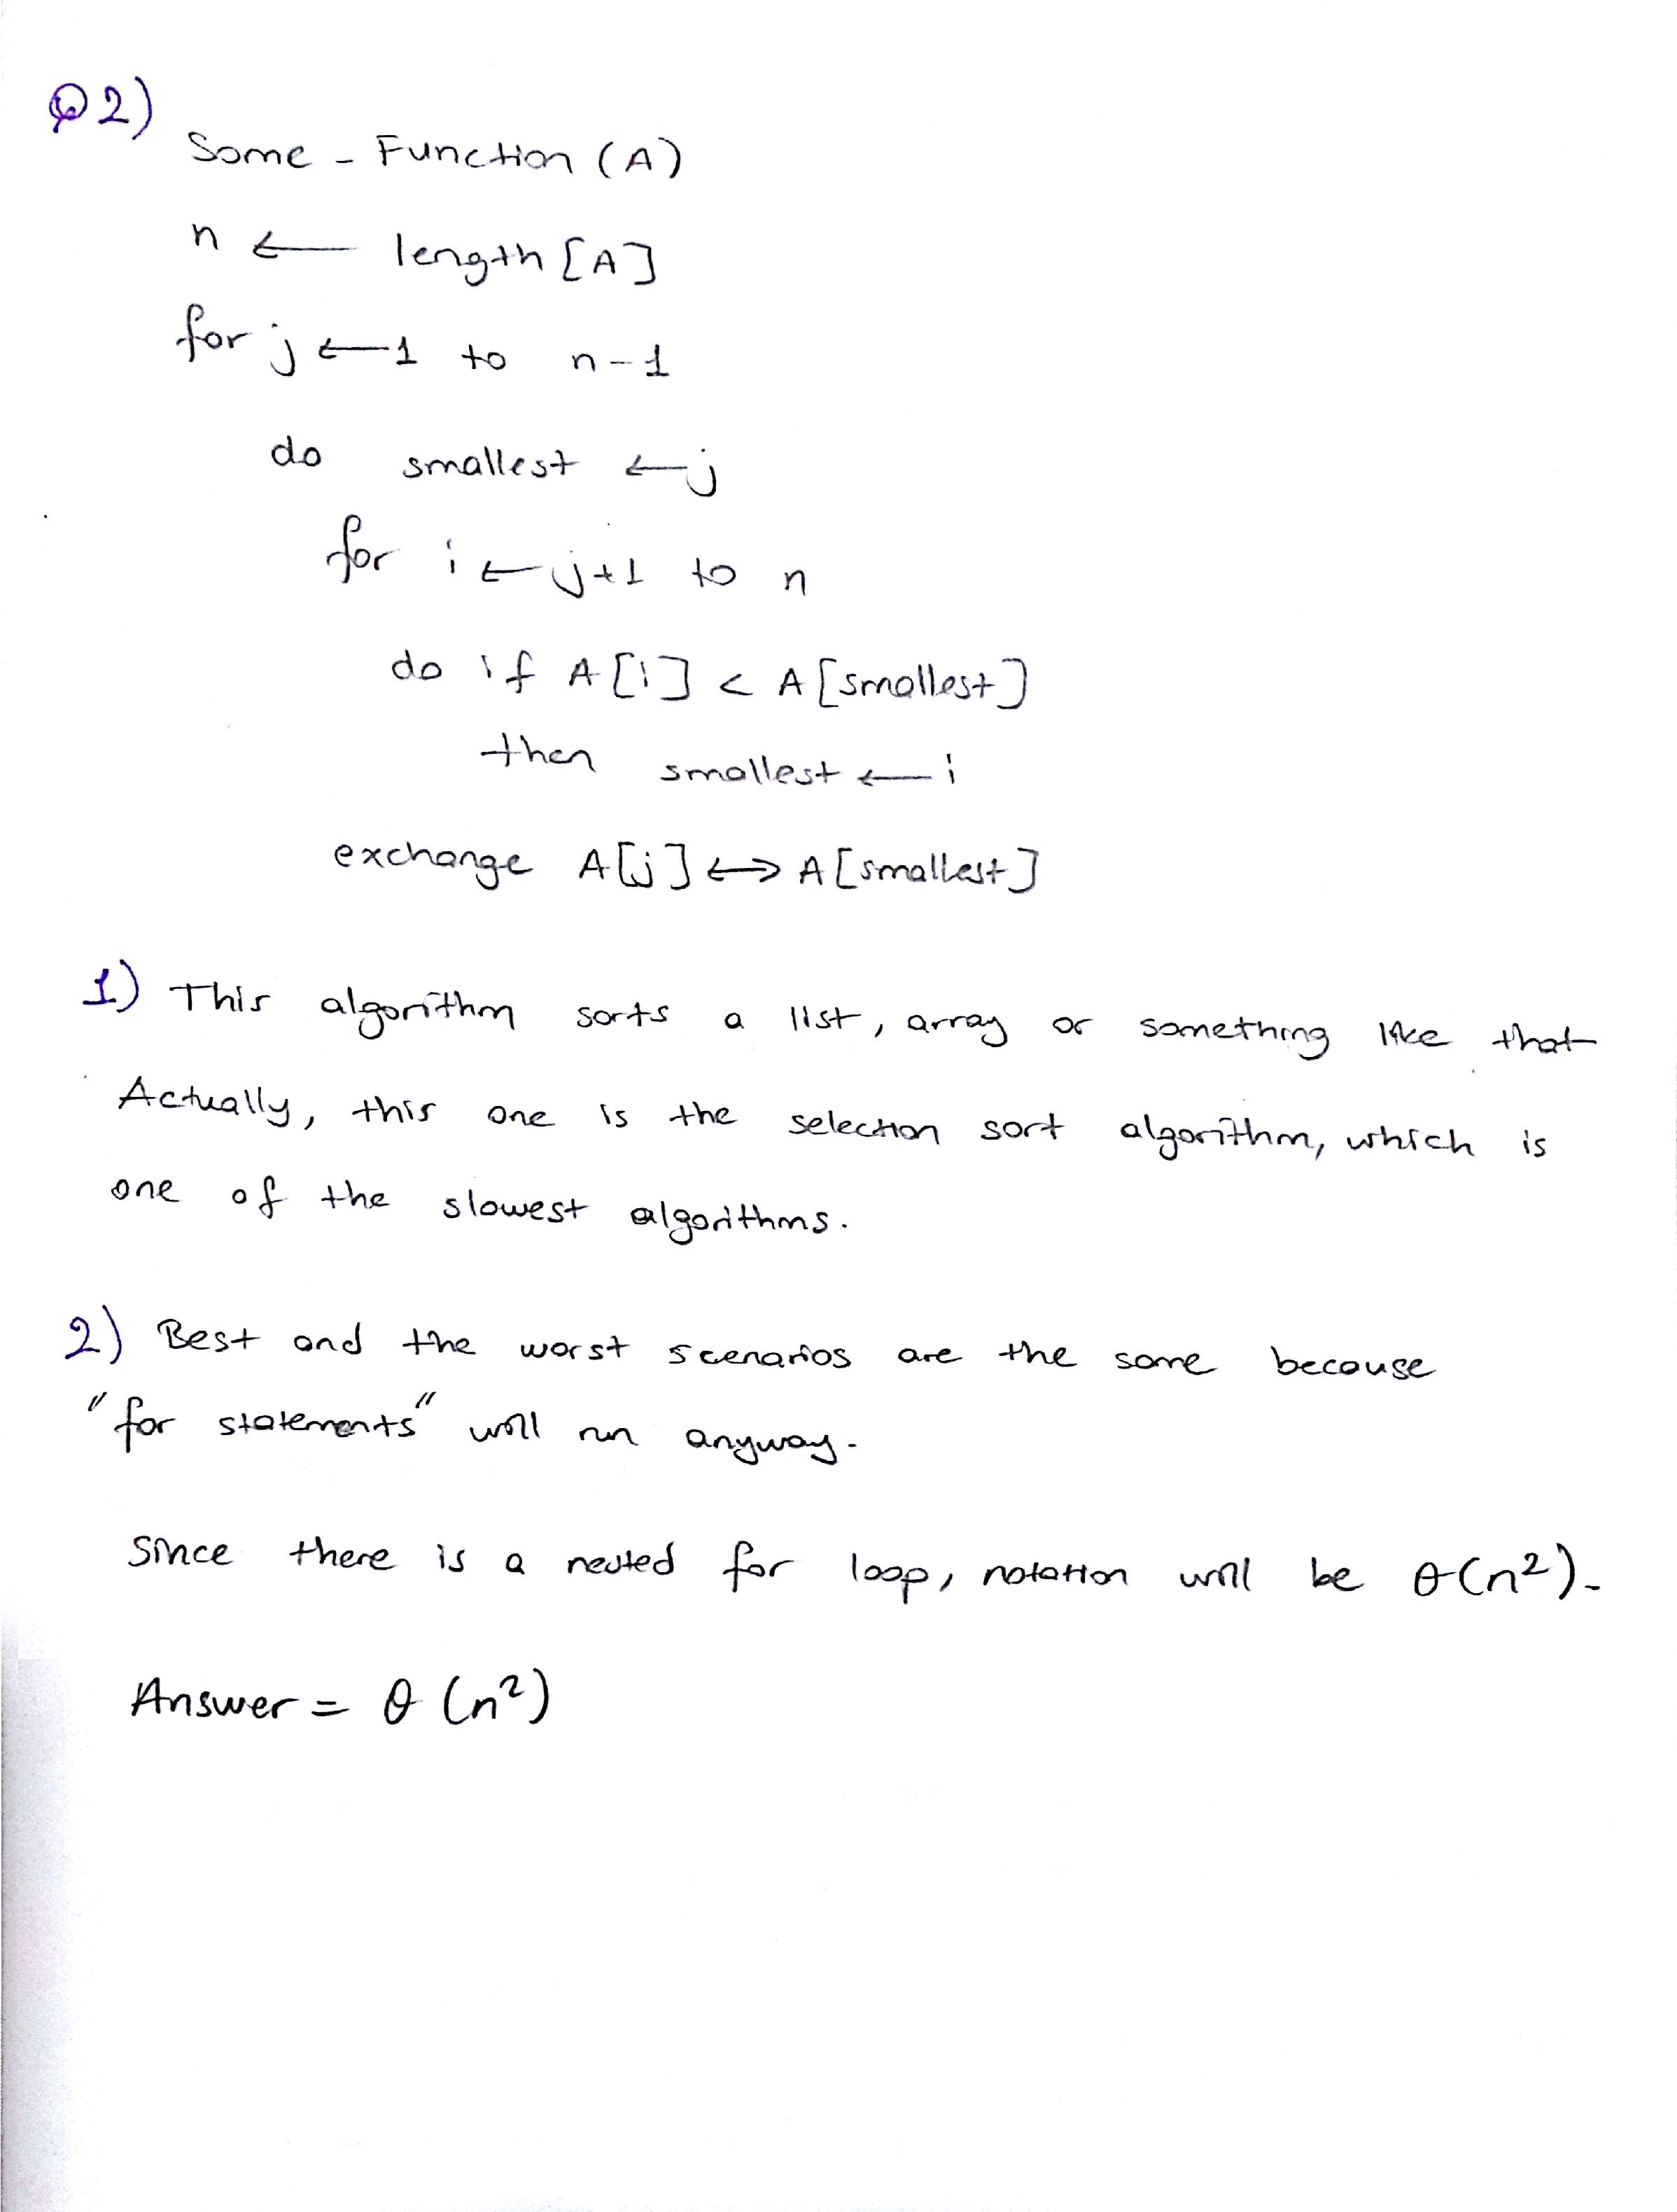 Q2)
Some - Function (A)
n ← length [A]
for j ← 1 to n-1
do smallest ← j
for i ← j+1 to n
do if A[i] < A[smallest]
then smallest ← i
exchange A[j] ↔ A[smallest]
1) This algorithm sorts a list, array or something like that
Actually, this one is the selection sort algorithm, which is
one of the slowest algorithms.
2) Best and the worst scenarios are the same because
"for statements" will run anyway.
Since there is a nested for loop, notation will be θ(n²).
Answer = θ (n²)